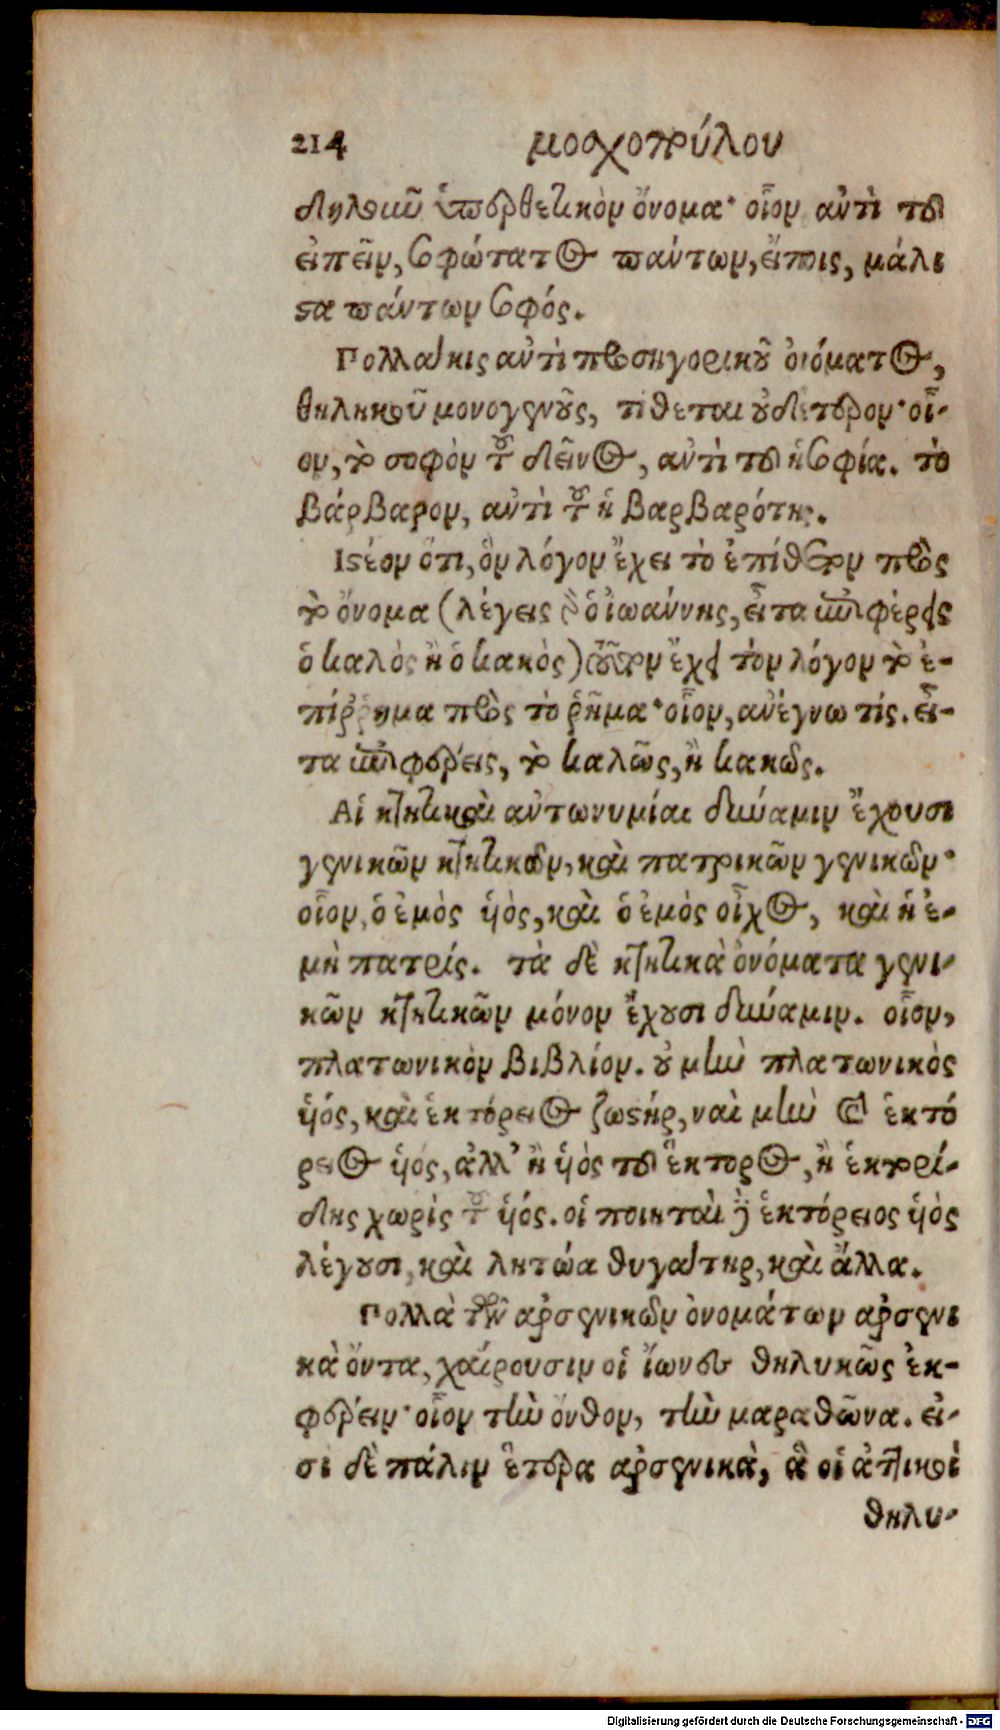 214 μοσχοπούλου
δηλοῦν ὑπερθετικὸν ὄνομα· οἷον ἀντὶ τοῦ
εἰπεῖν, σοφώτατος πάντων, εἴποις, μάλι
στα πάντων σοφός.
Πολλάκις ἀντὶ προσηγορικοῦ ὀνόματος,
θηλυκοῦ μονογενοῦς, τίθεται οὐδέτερον· οἷ-
ον, τὸ σοφὸν τοῦ δεῖνος, ἀντὶ τοῦ ἡ σοφία. τὸ
βάρβαρον, ἀντὶ τοῦ ἡ βαρβαρότης.
Ἰστέον ὅτι, ὃν λόγον ἔχει τὸ ἐπίθετον πρὸς
τὸ ὄνομα (λέγεις γὰρ ὁ ἰωάννης, εἶτα ἐπιφέρεις
ὁ καλὸς ἢ ὁ κακὸς) οὗτον ἔχει τὸν λόγον τὸ ἐ-
πίρρημα πρὸς τὸ ῥῆμα· οἷον, ἀνέγνω τίς. εἶ-
τα ἐπιφέρεις, τὸ καλῶς, ἢ κακῶς.
Αἱ κτητικαὶ ἀντωνυμίαι δύναμιν ἔχουσι
γενικῶν κτητικῶν, καὶ πατρικῶν γενικῶν·
οἷον, ὁ ἐμὸς ὑὸς, καὶ ὁ ἐμὸς οἶκος, καὶ ἡ ἐ-
μὴ πατρίς. τὰ δὲ κτητικὰ ὀνόματα γενι-
κῶν κτητικῶν μόνον ἔχουσι δύναμιν. οἷον,
πλατωνικὸν βιβλίον. οὐ μὴν πλατωνικὸς
ὑός, καὶ ἑκτόρειος ζωστήρ, ναὶ μὴν καὶ ἑκτό
ρειος ὑός, ἀλλ' ἢ ὑὸς τοῦ ἕκτορος, ἢ ἑκτορί-
δης χωρὶς τοῦ ὑός. οἱ ποιηταὶ δὲ ἑκτόρειος ὑὸς
λέγουσι, καὶ λητώα θυγάτηρ, καὶ ἄλλα.
Πολλὰ τῶν ἀρσενικῶν ὀνομάτων ἀρσενι
κὰ ὄντα, χαίρουσιν οἱ ἴωνες θηλυκῶς ἐκ-
φέρειν· οἷον τὴν ὄνθον, τὴν μαραθῶνα. εἰ-
σὶ δὲ πάλιν ἕτερα ἀρσενικὰ, ἃ οἱ ἀττικοὶ
θηλυ-
Digitalisierung gefördert durch die Deutsche Forschungsgemeinschaft - DFG